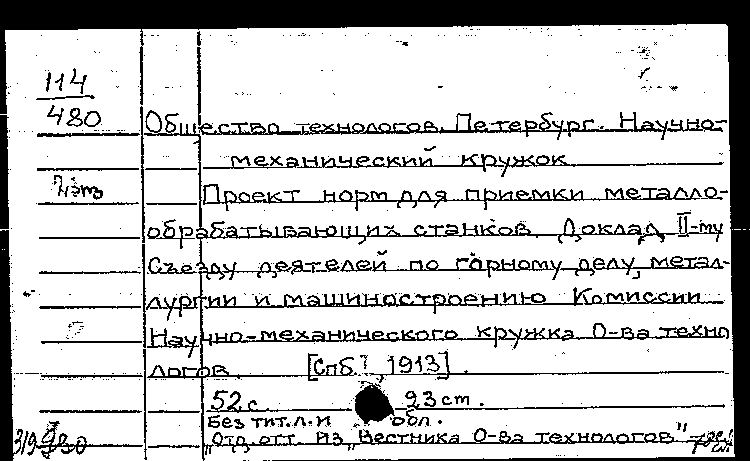 114
480
Общество технологов. Петербург. Научно-
механический кружок
Проект норм для приемки металло-
обрабатывающих станков. Доклад II-му
Съезду деятелей по горному делу, метал-
лургии и машиностроению Комиссии
Научно-механического кружка О-ва техно
логов. [Спб., 1913].
52 с. 23 см.
Без тит. л. и обл.
"Отд. отт. из "Вестника О-ва технологов"